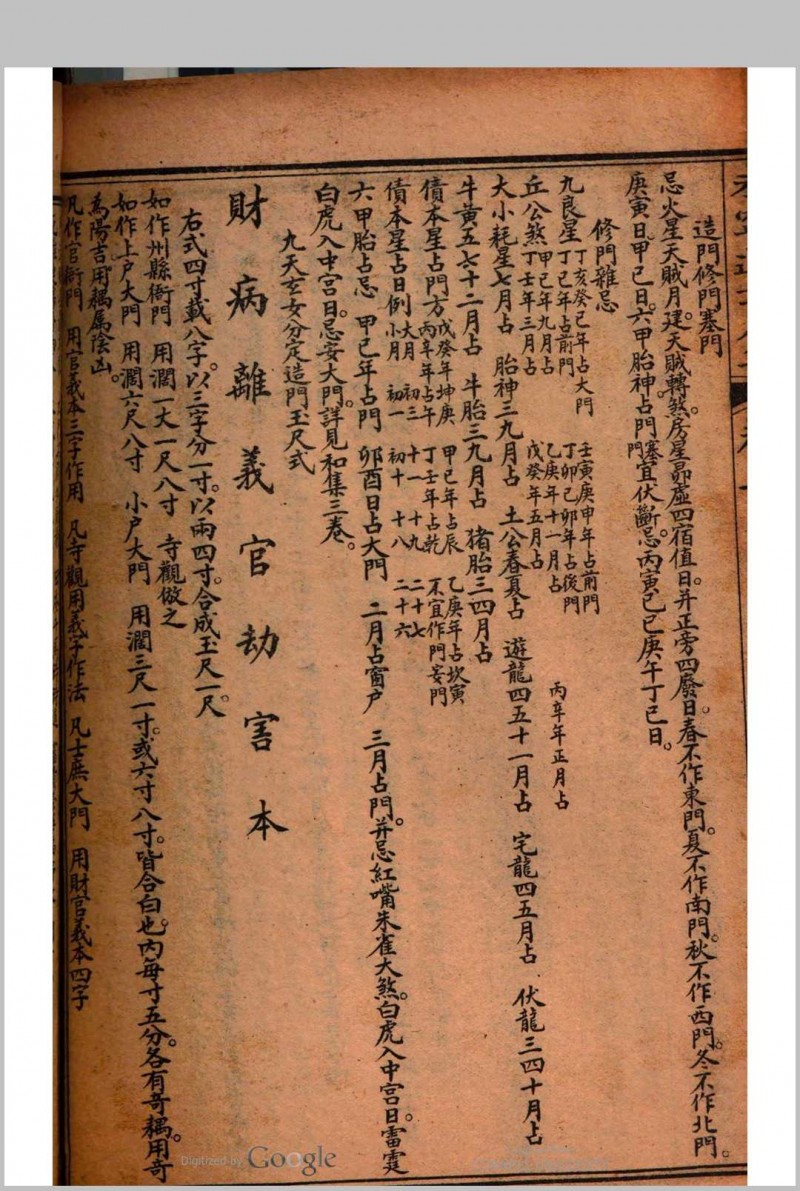 造門修門塞門
忌火星天賊月建天賊轉煞房星昴虛四宿值日。并正旁四廢日。春不作東門。夏不作南門。秋不作西門。冬不作北門。
庚寅日甲巳日。六甲胎神占門塞門宜伏斷忌。丙寅己巳庚午丁巳日。
修門雜忌
九良星 丁亥癸巳年占大門 壬寅庚申年占前門 丁巳年占前門 丁卯己卯年占後門
丘公煞 甲巳年九月占 乙庚年十一月占 丙辛年正月占 丁壬年三月占 戊癸年五月占
大小耗星七月占 胎神三九月占 土公春夏占 遊龍四五十一月占 宅龍四五月占 伏龍三四十月占
牛黃五七十二月占 牛胎三九月占 猪胎三四月占
債本星占門方 戊癸年坤庚 甲巳年占辰 乙庚年占坎寅 丙辛年占午 丁壬年占乾 不宜作門安門
債本星占日例 大月 初三 十一 十九 二十七 小月 初一 初十 十八 二十六
六甲胎占忌 甲己年占門 卯酉日占大門 二月占窗户 三月占門。并忌紅嘴朱雀大煞。白虎入中宮日。雷霆
白虎入中宮日。忌安大門。詳見和集三卷。
九天玄女分定造門玉尺式
財 病 離 義 官 劫 害 本
右式四寸載八字。以三字分一寸。以兩四寸。合成玉尺一尺。
如作州縣衙門 用濶一丈一尺八寸 寺觀倣之
如作上户大門 用濶六尺八寸 小户大門 用濶三尺一寸。或六寸八寸。皆合白也。內每寸五分。各有奇耦。用奇
為陽吉用耦屬陰凶。
凡作官衙門 用官義本三字作用 凡寺觀用義字作法 凡士庶大門 用財官義本四字
Digitized by Google